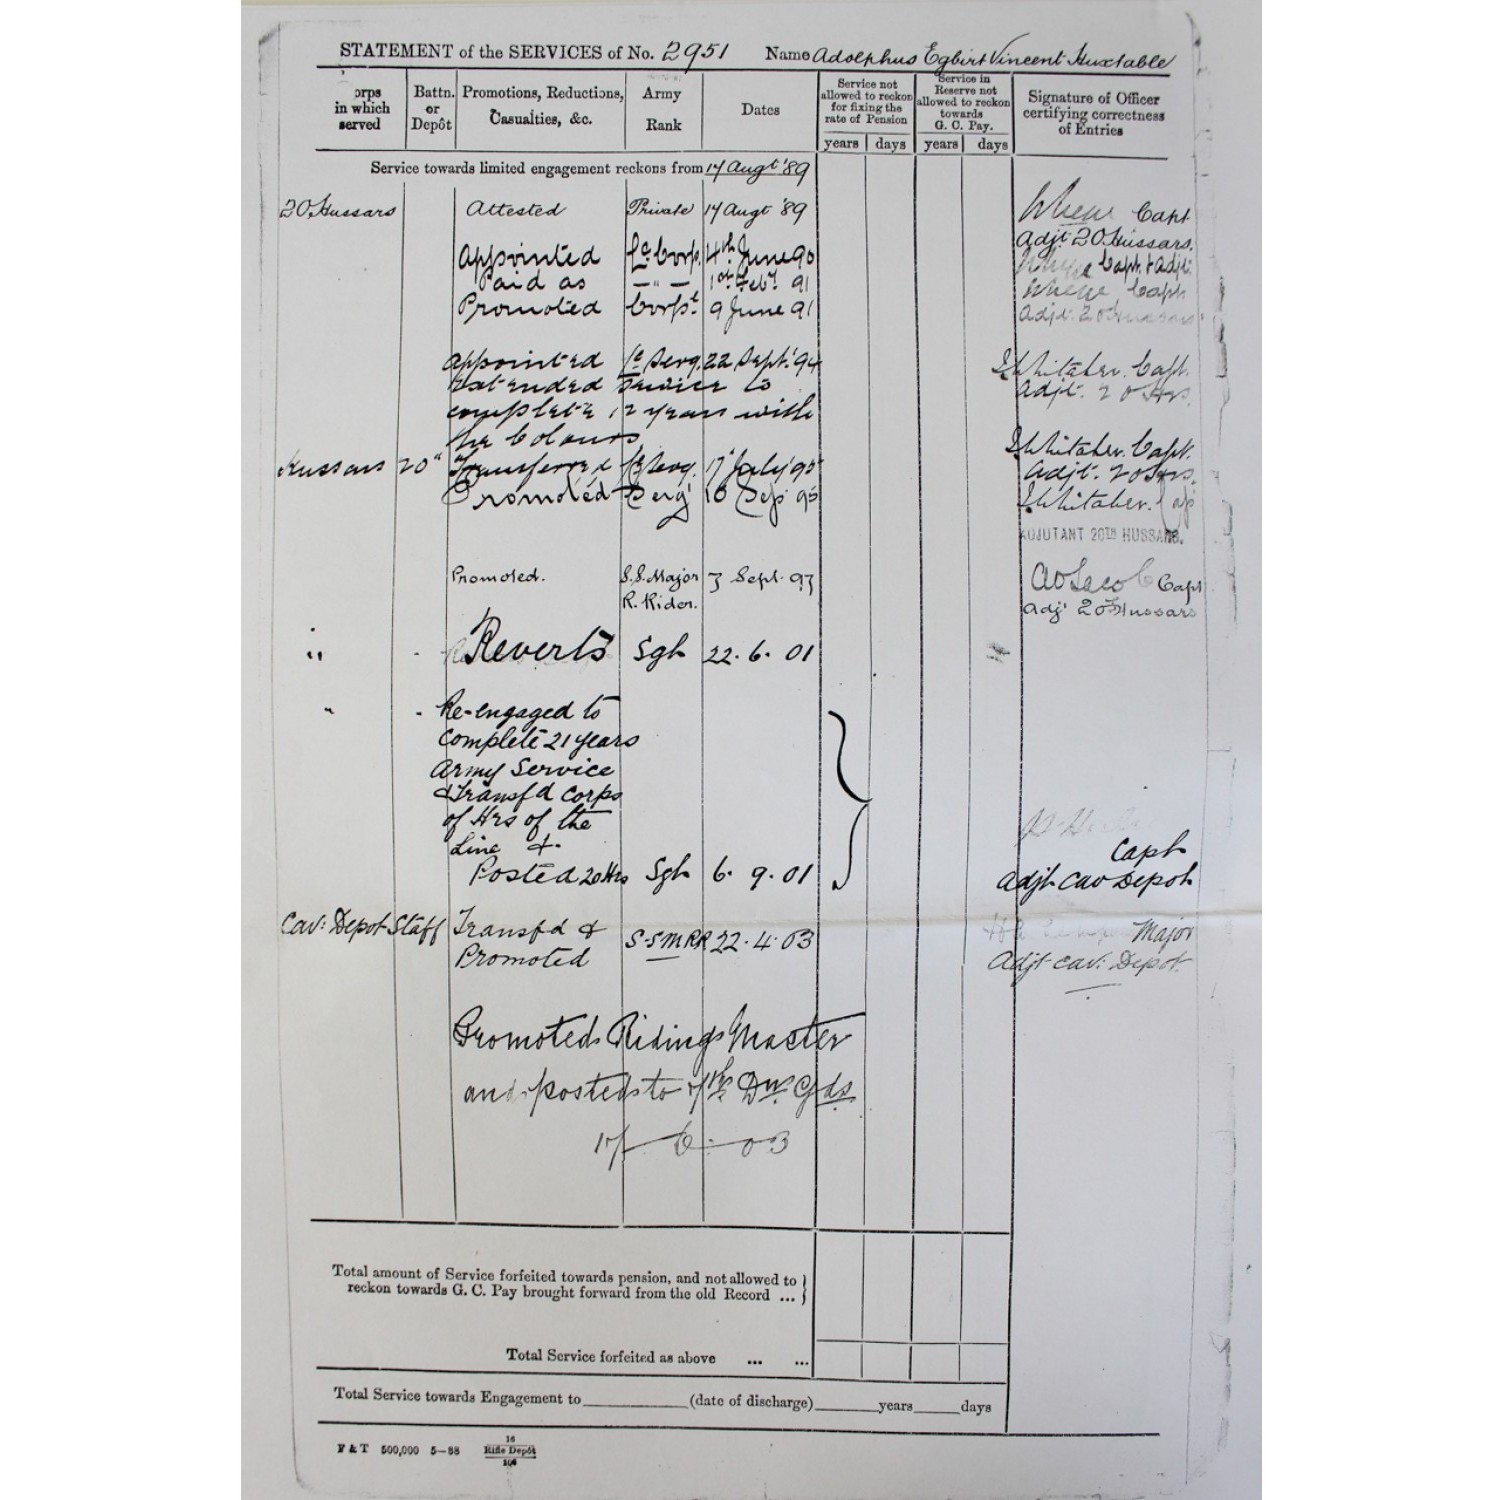 STATEMENT of the SERVICES of No. 2951 Name Adolphus Egbirt Vincent Huxtable
orps in which served
Battn. or Depôt
Promotions, Reductions, Casualties, &c.
Army Rank
Dates
Service not allowed to reckon for fixing the rate of Pension
Service in Reserve not allowed to reckon towards G. C. Pay.
Signature of Officer certifying correctness of Entries
years days years days
Service towards limited engagement reckons from 14 Augt '89
20 Hussars Attested Private 14 Augt '89 Capt
Adjt 20 Hussars.
Appointed Lce Corp. 4th June 90 Capt & Adjt.
Paid as — " — 1st Feby 91 Capt
Promoted Corpl 9 June 91 Adjt. 20 Hussars
Appointed Lce Serg. 22 Sept. '94 Whitaker. Capt.
Extended Service to Adjt. 20 Hrs.
complete 12 years with
the Colours Whitaker. Capt.
Hussars 20" Transferred Lce Serg. 17 July '95 Adjt. 20 Hrs.
Promoted Serg 10 Sep 95 Whitaker. Cap
ADJUTANT 20TH HUSSARS.
Promoted. S.S. Major 3 Sept. 97 Capt
R. Rider. Adj 20 Hussars
" Reverts Sgt 22. 6. 01
" Re-engaged to
Complete 21 years
Army Service
& Transfd Corps
of Hrs of the
Line &
Posted 20 Hrs Sgt 6. 9. 01 Capt
Adjt Cav Depot
Cav: Depot Staff Transfd & S-S M RR 22. 4. 03 Major
Promoted Adjt Cav: Depot.
Promoted Riding Master
and posted to 7th Dn. Gds.
17 — 6 — 03
Total amount of Service forfeited towards pension, and not allowed to }
reckon towards G. C. Pay brought forward from the old Record ... }
Total Service forfeited as above ... ...
Total Service towards Engagement to (date of discharge) years days
F & T 500,000 5—88 16
Rifle Depôt
104